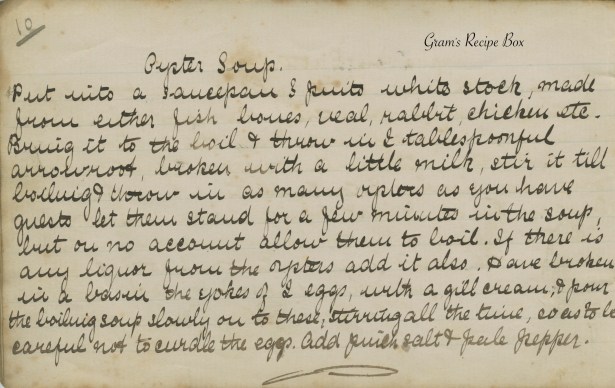 10
Gram's Recipe Box
Oyster Soup.
Put into a saucepan 2 pints white stock, made
from either fish bones, veal, rabbit, chicken etc.
Bring it to the boil & throw in 2 tablespoonful
arrowroot, broken with a little milk, stir it till
boiling & throw in as many oysters as you have
guests let them stand for a few minutes in the soup,
but on no account allow them to boil. If there is
any liquor from the oysters add it also. Have broken
in a basin the yokes of 2 eggs, with a gill cream, & pour
the boiling soup slowly on to these, stirring all the time, so as to be
careful not to curdle the eggs. Add pinch salt & pale pepper.